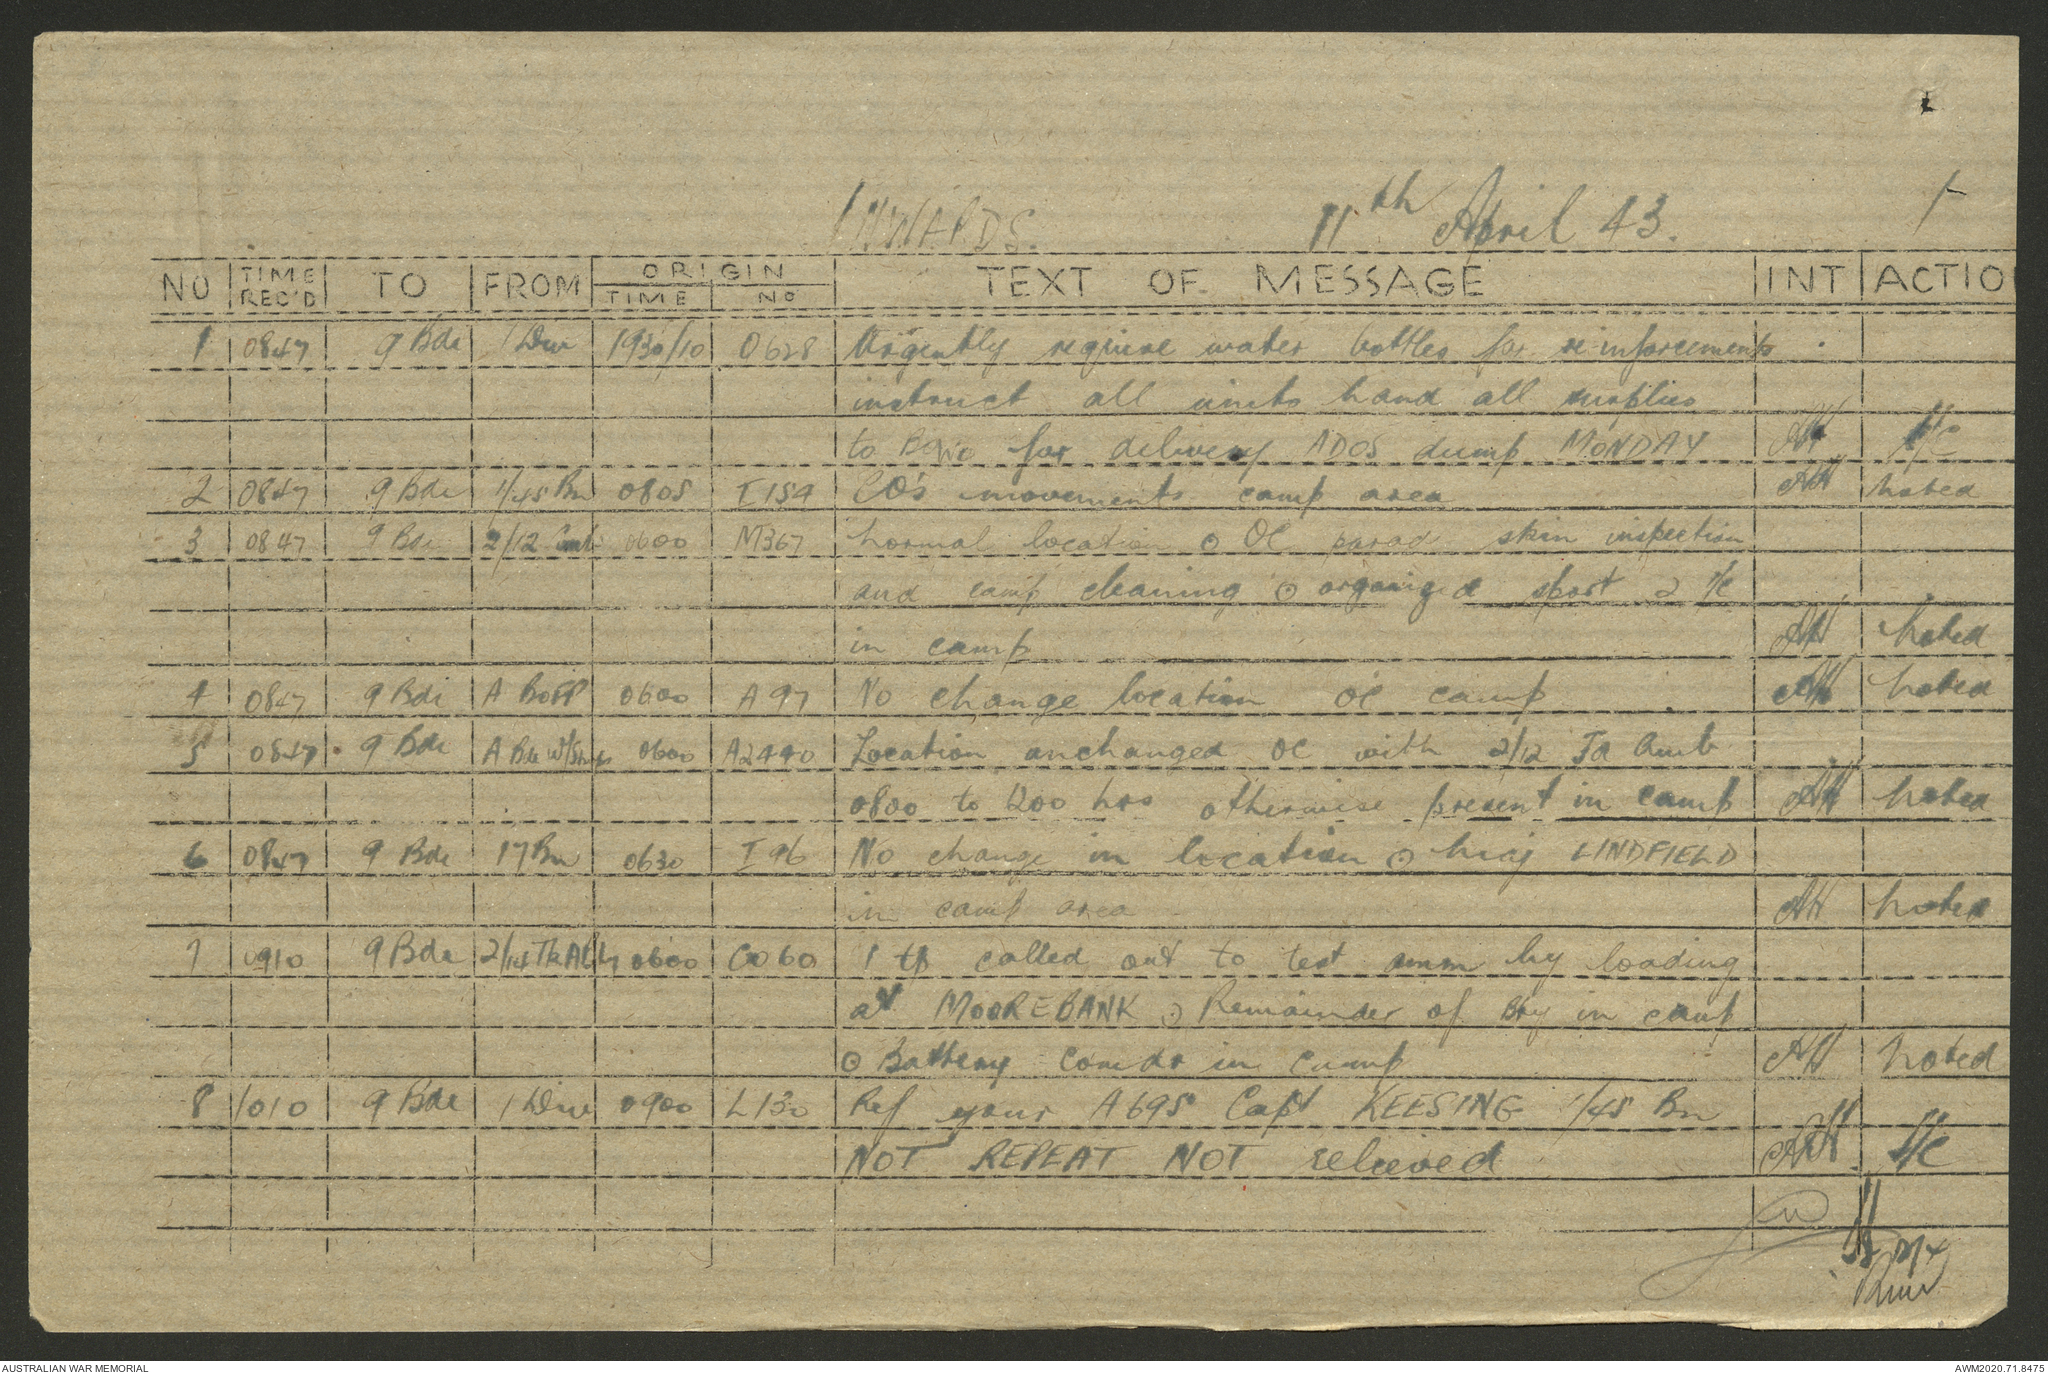 INWARDS. 11th April 43.
NO TIME REC'D TO FROM ORIGIN TIME NO TEXT OF MESSAGE INT ACTIO
1 0847 9 Bde 1 Div 1930/10 0628 Urgently require water bottles for reinforcements
instruct all units hand all surplies
to for delivery ADOS dump MONDAY AH
2 0847 9 Bde 1/45 Bn 0805 I154 CO's movements camp area AH noted
3 0847 9 Bde 2/12 0600 M367 normal location ⊙ OC parad skin inspection
and camp cleaning ⊙ organized sport 2 i/c
in camp AH noted
4 0847 9 Bde A BOFP 0600 A 97 No change location OC camp AH noted
5 0847 9 Bde A Bde W/Shops 0600 A2440 Location unchanged OC with 2/12 Fd Amb
0800 to 1200 hrs otherwise present in camp AH noted
6 0847 9 Bde 17 Bn 0630 I 96 No change in location ⊙ Maj LINDFIELD
in camp area AH noted
7 0910 9 Bde 2/14 0600 CO60 1 tp called out to test amm by loading
at MOOREBANK ⊙ Remainder of Bty in camp
⊙ Battery comdr in camp AH noted
8 1010 9 Bde 1 Div 0900 L130 Ref your A695 Capt KEESING 1/45 Bn
NOT REPEAT NOT relieved AH
AUSTRALIAN WAR MEMORIAL AWM2020.71.8475